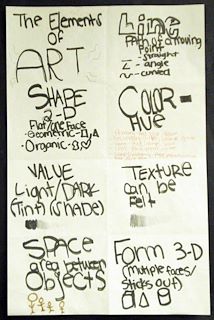 The Elements
Of
ART
Line
Path of a moving
Point
-straight
-angle
-curved
SHAPE
2-D
Flat/one Face
-Geometric-
-Organic-
COLOR-
Hue
VALUE
Light/DARK
(Tint)(SHADE)
TEXTURE
can be
Felt
SPACE
area between
Objects
Form 3-D
(multiple faces/
Sticks out)